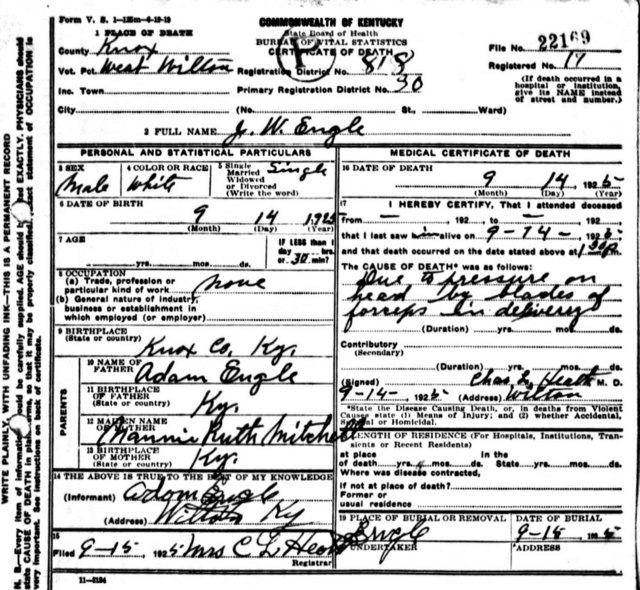 Form V. S. 1-125m-6-19-19
COMMONWEALTH OF KENTUCKY
State Board of Health
BUREAU OF VITAL STATISTICS
CERTIFICATE OF DEATH
1 PLACE OF DEATH
County Knox
File No. 22169
Vot. Pct. West Wilton
Registration District No. 818
Registered No. 17
Inc. Town
Primary Registration District No. 30
(If death occurred in a hospital or institution, give its NAME instead of street and number.)
City (No. St., Ward)
2 FULL NAME J. W. Engle
PERSONAL AND STATISTICAL PARTICULARS
3 SEX Male
4 COLOR OR RACE White
5 Single Married Widowed or Divorced (Write the word) Single
6 DATE OF BIRTH
9 14 1925
(Month) (Day) (Year)
7 AGE
yrs. mos. ds.
IF LESS than 1 day hrs. or 30 min?
8 OCCUPATION
(a) Trade, profession or particular kind of work none
(b) General nature of industry, business or establishment in which employed (or employer)
9 BIRTHPLACE
(State or country)
Knox Co, Ky.
PARENTS
10 NAME OF FATHER Adam Engle
11 BIRTHPLACE OF FATHER
(State or country) Ky.
12 MAIDEN NAME OF MOTHER Ruth Mitchell
13 BIRTHPLACE OF MOTHER
(State or country) Ky.
14 THE ABOVE IS TRUE TO THE BEST OF MY KNOWLEDGE
(Informant) Adam Engle
(Address) Wilton Ky
15
Filed 9-15, 1925 Mrs C L
Registrar
11-5184
MEDICAL CERTIFICATE OF DEATH
16 DATE OF DEATH
9 14 1925
(Month) (Day) (Year)
17 I HEREBY CERTIFY, That I attended deceased
from — , 192 to — , 192 ,
that I last saw him alive on 9-14- , 1925
and that death occurred on the date stated above at
The CAUSE OF DEATH* was as follows:
Due to pressure on
head by blades of
forceps in delivery
(Duration) yrs. mos. ds.
Contributory
(Secondary)
(Duration) yrs. mos. ds.
(Signed) Chas. L. Heath M. D.
9-14- , 1925 (Address) Wilton
*State the Disease Causing Death, or, in deaths from Violent
Causes state (1) Means of Injury; and (2) whether Accidental,
Suicidal or Homicidal.
LENGTH OF RESIDENCE (For Hospitals, Institutions, Transients or Recent Residents)
at place of death yrs. mos. ds. In the State yrs. mos. ds.
Where was disease contracted,
if not at place of death?
Former or
usual residence
19 PLACE OF BURIAL OR REMOVAL
Engle
DATE OF BURIAL
9-15 , 1925
UNDERTAKER
ADDRESS